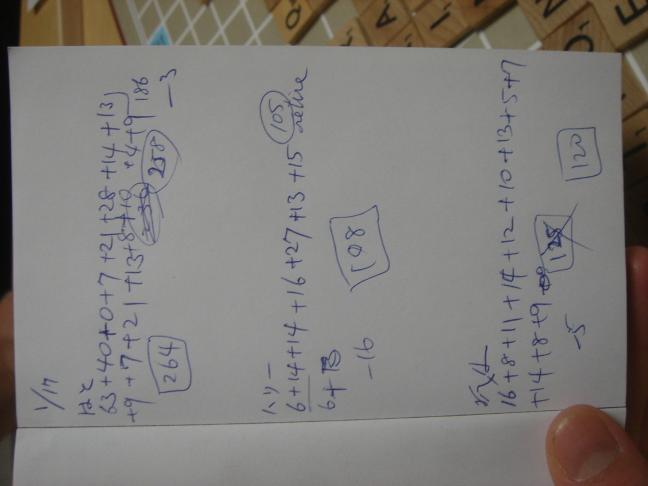 1/17
はと
63+40+0+7+21+28+14+13
+9+7+21+13+8+10 +4+9 186
258 -3
264
ハリー
6+14+14+16+27+13+15 105 retire
6+
-16
108
16+8+11+14+12+10+13+5+7
+14+8+9
-5
120